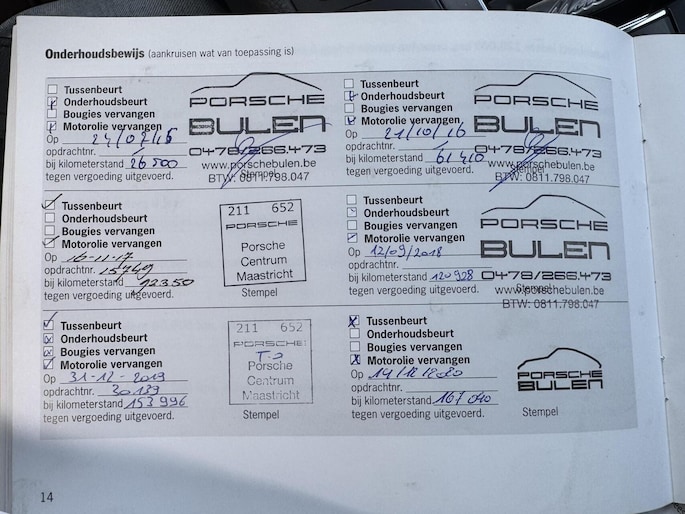 Onderhoudsbewijs (aankruisen wat van toepassing is)
Tussenbeurt
Onderhoudsbeurt
Bougies vervangen
Motorolie vervangen
Op 24/07/15
opdrachtnr.
bij kilometerstand 26 500
tegen vergoeding uitgevoerd.
PORSCHE
BULEN
0478/866.473
www.porschebulen.be
Stempel
BTW: 0811.798.047
Tussenbeurt
Onderhoudsbeurt
Bougies vervangen
Motorolie vervangen
Op 21/10/16
opdrachtnr.
bij kilometerstand 61 410
tegen vergoeding uitgevoerd.
PORSCHE
BULEN
0478/866.473
www.porschebulen.be
Stempel
BTW: 0811.798.047
Tussenbeurt
Onderhoudsbeurt
Bougies vervangen
Motorolie vervangen
Op 16-11-17
opdrachtnr. 15749
bij kilometerstand 92350
tegen vergoeding uitgevoerd.
211 652
PORSCHE
Porsche
Centrum
Maastricht
Stempel
Tussenbeurt
Onderhoudsbeurt
Bougies vervangen
Motorolie vervangen
Op 12/09/2018
opdrachtnr.
bij kilometerstand 120 928
tegen vergoeding uitgevoerd.
PORSCHE
BULEN
0478/866.473
Stempel
www.porschebulen.be
BTW: 0811.798.047
Tussenbeurt
Onderhoudsbeurt
Bougies vervangen
Motorolie vervangen
Op 31-12-2019
opdrachtnr. 30189
bij kilometerstand 153 996
tegen vergoeding uitgevoerd.
211 652
PORSCHE
Porsche
Centrum
Maastricht
Stempel
Tussenbeurt
Onderhoudsbeurt
Bougies vervangen
Motorolie vervangen
Op 14/12/2020
opdrachtnr.
bij kilometerstand 167 040
tegen vergoeding uitgevoerd.
PORSCHE
BULEN
Stempel
14